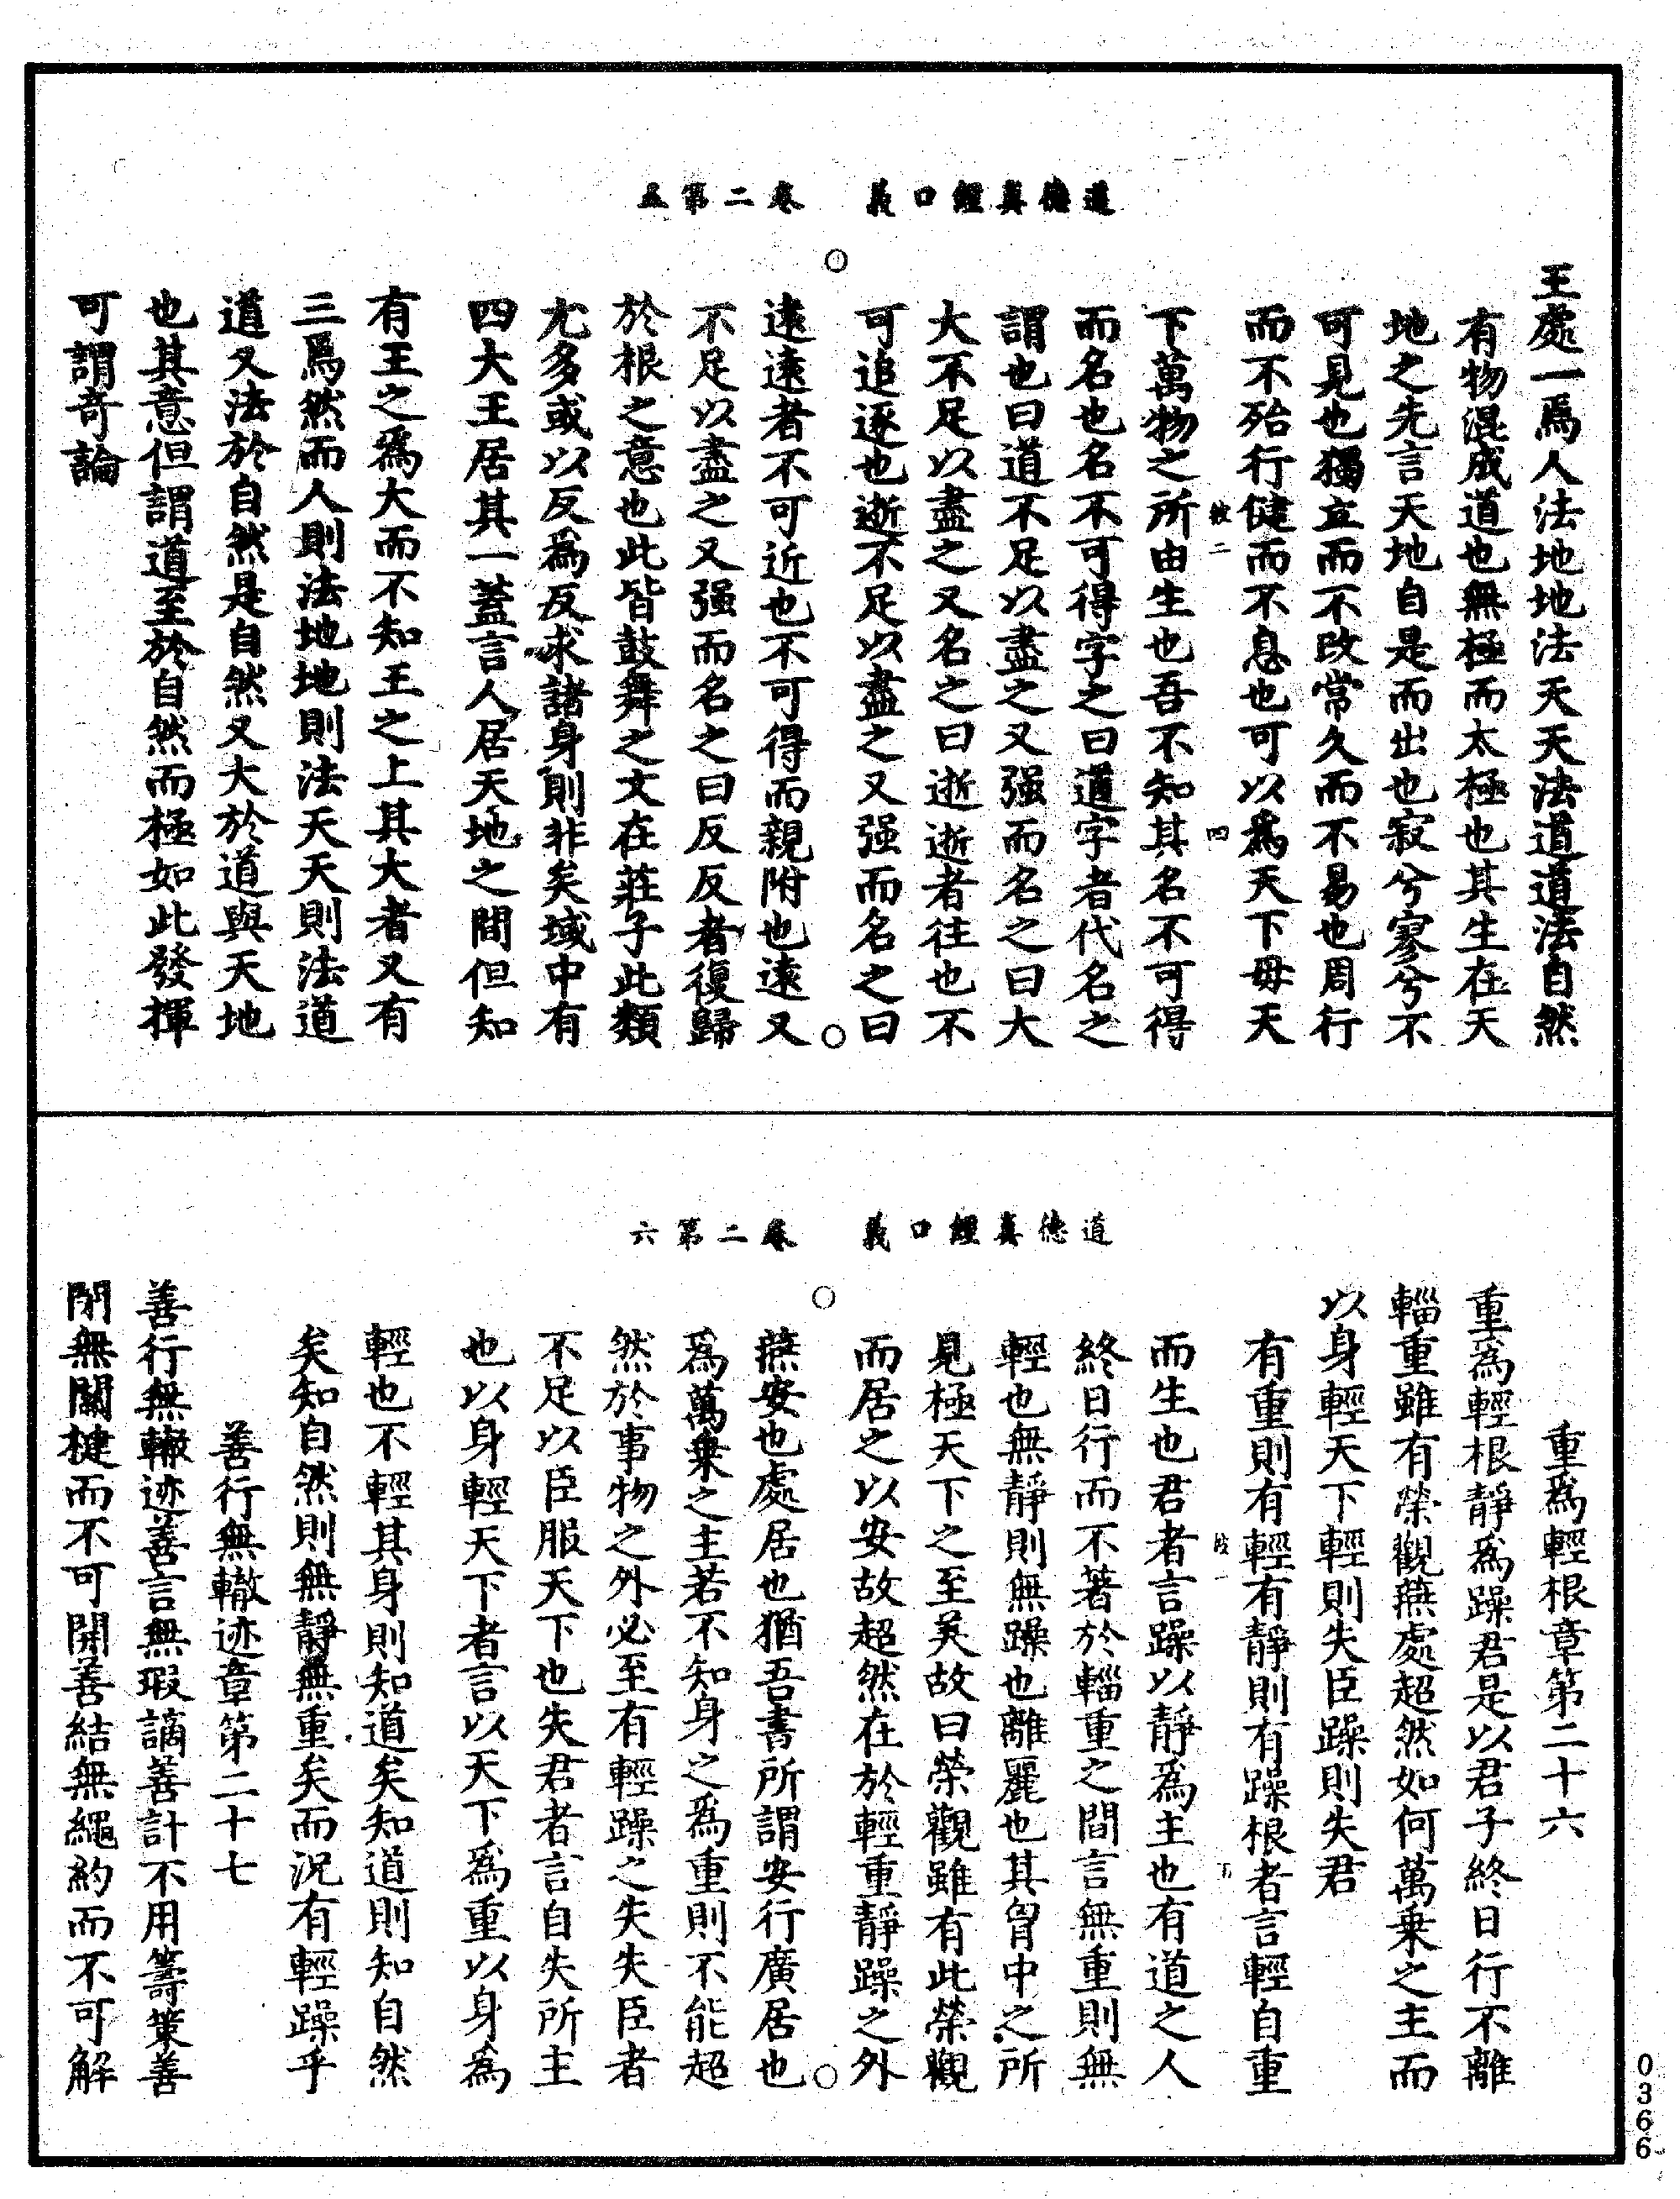 道德真經口義　卷二第五
王處一爲人法地地法天天法道道法自然
有物混成道也無極而太極也其生在天
地之先言天地自是而出也寂兮寥兮不
可見也獨立而不改常久而不易也周行
而不殆行健而不息也可以爲天下母天
下萬物之所由生也吾不知其名不可得
而名也名不可得字之曰道字者代名之
謂也曰道不足以盡之又强而名之曰大
大不足以盡之又名之曰逝逝者往也不
可追逐也逝不足以盡之又强而名之曰
遠遠者不可近也不可得而親附也遠又
不足以盡之又强而名之曰反反者復歸
於根之意也此皆鼓舞之文在莊子此類
尤多或以反爲反求諸身則非矣域中有
四大王居其一蓋言人居天地之間但知
有王之爲大而不知王之上其大者又有
三焉然而人則法地地則法天天則法道
道又法於自然是自然又大於道與天地
也其意但謂道至於自然而極如此發揮
可謂奇論
二
四
道德真經口義　卷二第六
重爲輕根章第二十六
重爲輕根靜爲躁君是以君子終日行不離
輜重雖有榮觀燕處超然如何萬乗之主而
以身輕天下輕則失臣躁則失君
有重則有輕有靜則有躁根者言輕自重
而生也君者言躁以靜爲主也有道之人
終日行而不著於輜重之間言無重則無
輕也無靜則無躁也離麗也其胷中之所
見極天下之至美故曰榮觀雖有此榮觀
而居之以安故超然在於輕重靜躁之外
燕安也處居也猶吾書所謂安行廣居也
爲萬乗之主若不知身之爲重則不能超
然於事物之外必至有輕躁之失失臣者
不足以臣服天下也失君者言自失所主
也以身輕天下者言以天下爲重以身爲
輕也不輕其身則知道矣知道則知自然
矣知自然則無靜無重矣而況有輕躁乎
善行無轍迹章第二十七
善行無轍迹善言無瑕謫善計不用籌策善
閉無關楗而不可開善結無繩約而不可解
一
0366